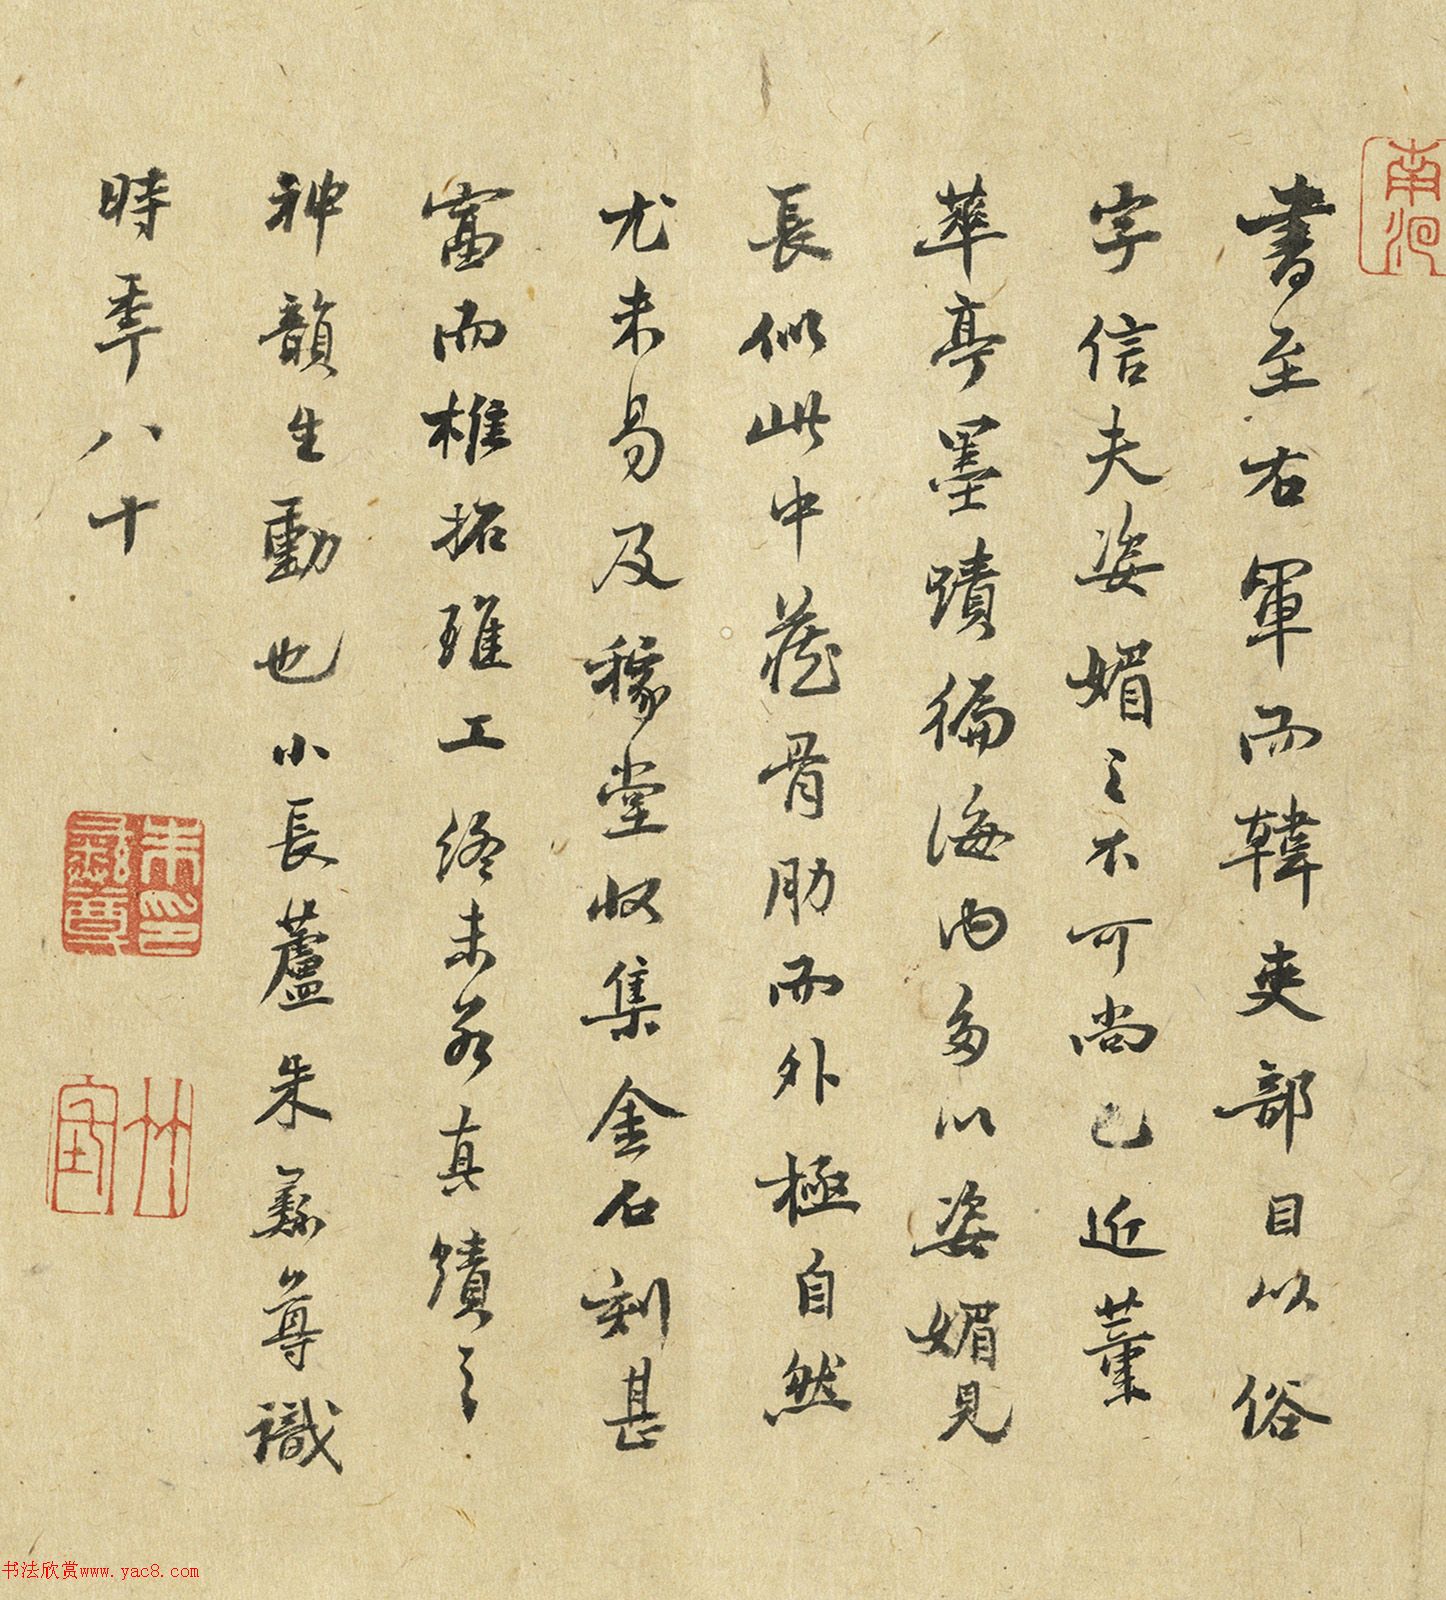 書至右軍而韓吏部目以俗
字信夫姿媚之不可尚已近董
華亭墨蹟徧海内多以姿媚見
長似此中藏骨肋而外極自然
尤未易及稼堂收集金石刻甚
富而椎拓雖工終未若真蹟之
神韻生動也小長蘆朱彝尊識
時年八十
朱彝尊印
竹垞
书法欣赏www.yac8.com